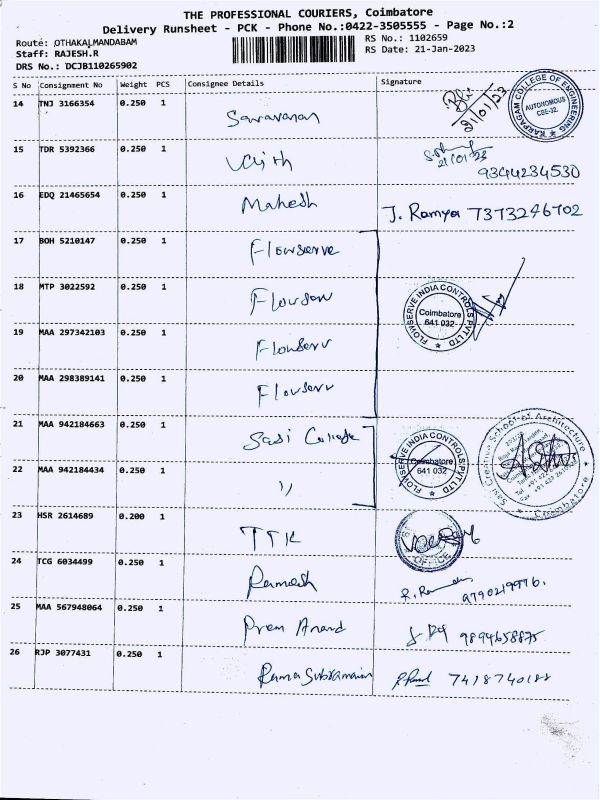 THE PROFESSIONAL COURIERS, Coimbatore
Delivery Runsheet - PCK - Phone No.:0422-3505555 - Page No.:2
Route: OTHAKALMANDABAM
RS No.: 1102659
Staff: RAJESH.R
RS Date: 21-Jan-2023
DRS No.: DCJB110265902
S No Consignment No Weight PCS Consignee Details Signature
14 TNJ 3166354 0.250 1 Saravanan 21/01/23
KARPAGAM COLLEGE OF ENGINEERING AUTONOMOUS CBE-32.
15 TDR 5392366 0.250 1 21/01/23 9344234530
16 EDQ 21465654 0.250 1 Mahesh J. Ramya 7373246702
17 BOH 5210147 0.250 1 Flowserve
18 MTP 3022592 0.250 1 Flowserv
FLOWSERVE INDIA CONTROLS PVT LTD Coimbatore 641 032
19 MAA 297342103 0.250 1 Flowserv
20 MAA 298389141 0.250 1 Flowserv
21 MAA 942184663 0.250 1 Sasi College
FLOWSERVE INDIA CONTROLS PVT LTD Coimbatore 641 032
Sasi Creative School of Architecture Coimbatore
22 MAA 942184434 0.250 1 "
23 HSR 2614689 0.200 1 TTK
OFFICE
24 TCG 6034499 0.250 1 Ramesh 9790219976.
25 MAA 567948064 0.250 1 Prem Anand 9894658875
26 RJP 3077431 0.250 1 Rama Subramaniam 7418740188